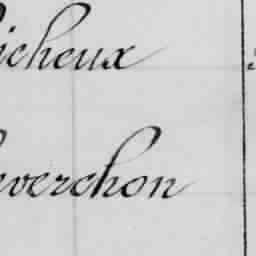 icheux
everchon